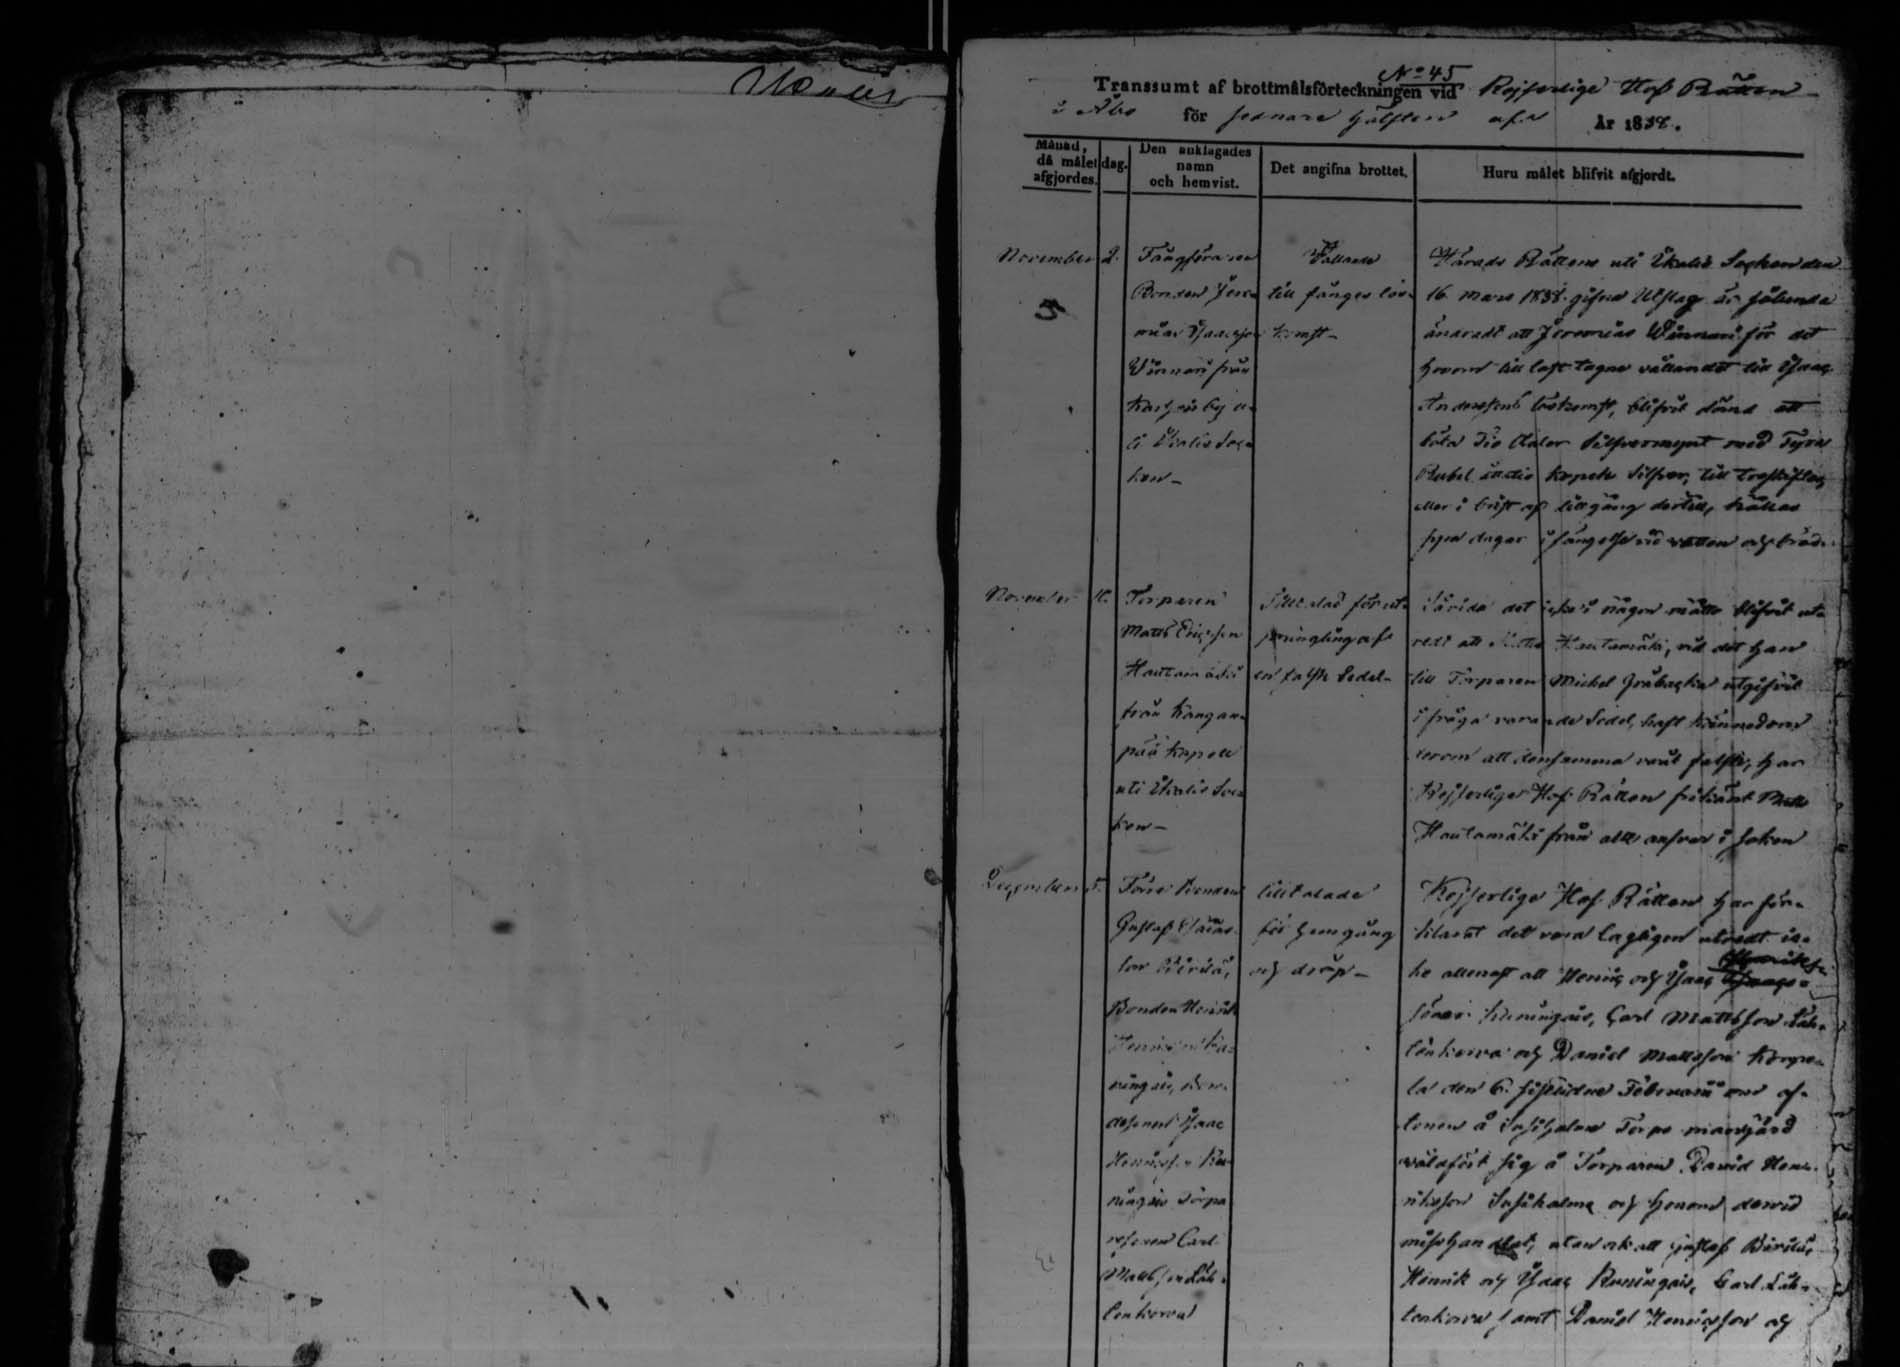 No 45
Transsumt af brottmålsförteckningen vid Kejserliga Hof Rätten
i Åbo för sednare hälften af år 1838.
Månad, då målet afgjordes.
dag.
Den anklagades namn och hemvist.
Det angifna brottet.
Huru målet blifvit afgjordt.
November 2.
Fångföraren
Bonden Jere-
mias Isaacsson
Winnari från
by u-
ti Ikalis Soc-
ken -
Vållande
till fånges lös-
komst -
Härads Rättens uti Ikalis Socken den
16 Mars 1838 gifna Utslag är sålunda
ändradt att Jeremias Winnari för det
honom till last tagne vållandet till Isaac
Anderssons löskomst, blifvit dömd att
böta Tio daler Silfvermynt med Fyra
Rubel åttio kopek Silfver, till treskiftes,
eller i brist af tillgång dertill, hållas
fyra dagar i fängelse vid vatten och bröd.
November
Torparen
Matts Ericsson
Hautamäki
från Kangan-
pää Kapell
uti Ikalis Soc-
ken -
Tilltalad för ut-
prångling af
en falsk Sedel -
Såvida det icke i någon måtto blifvit ut-
redt att Matts Hautamäki, vid det han
till Torparen Michel Gråbacka utgifvit
i fråga varande Sedel, haft kännedom
derom att densamma varit falsk, har
Kejserliga Hof Rätten frikänt Matts
Hautamäki från allt ansvar i saken
December 5.
Förre Bonden
Gustaf
Bonden Henrik
son Isaac
Torpa-
resonen Carl
Mattsson Läh-
tenkorva
tilltalade
för hemgång
och dråp -
Kejserliga Hof Rätten har för-
klarat det vara lagligen utredt ic-
ke allenast att Henric och Isaac Henriks-
söner Kuningas, Carl Mattsson Läh-
tenkorva och Daniel Mattsson
la den 6. sistlidne Februarii om af-
tonen å Torps mangård
våldfört sig å Torparen David Hen-
riksson och honom dervid
misshandlat, utan ock att Gustaf
Henrik och Isaac Kuningas, Carl Läh-
tenkorva samt Daniel Henricsson och